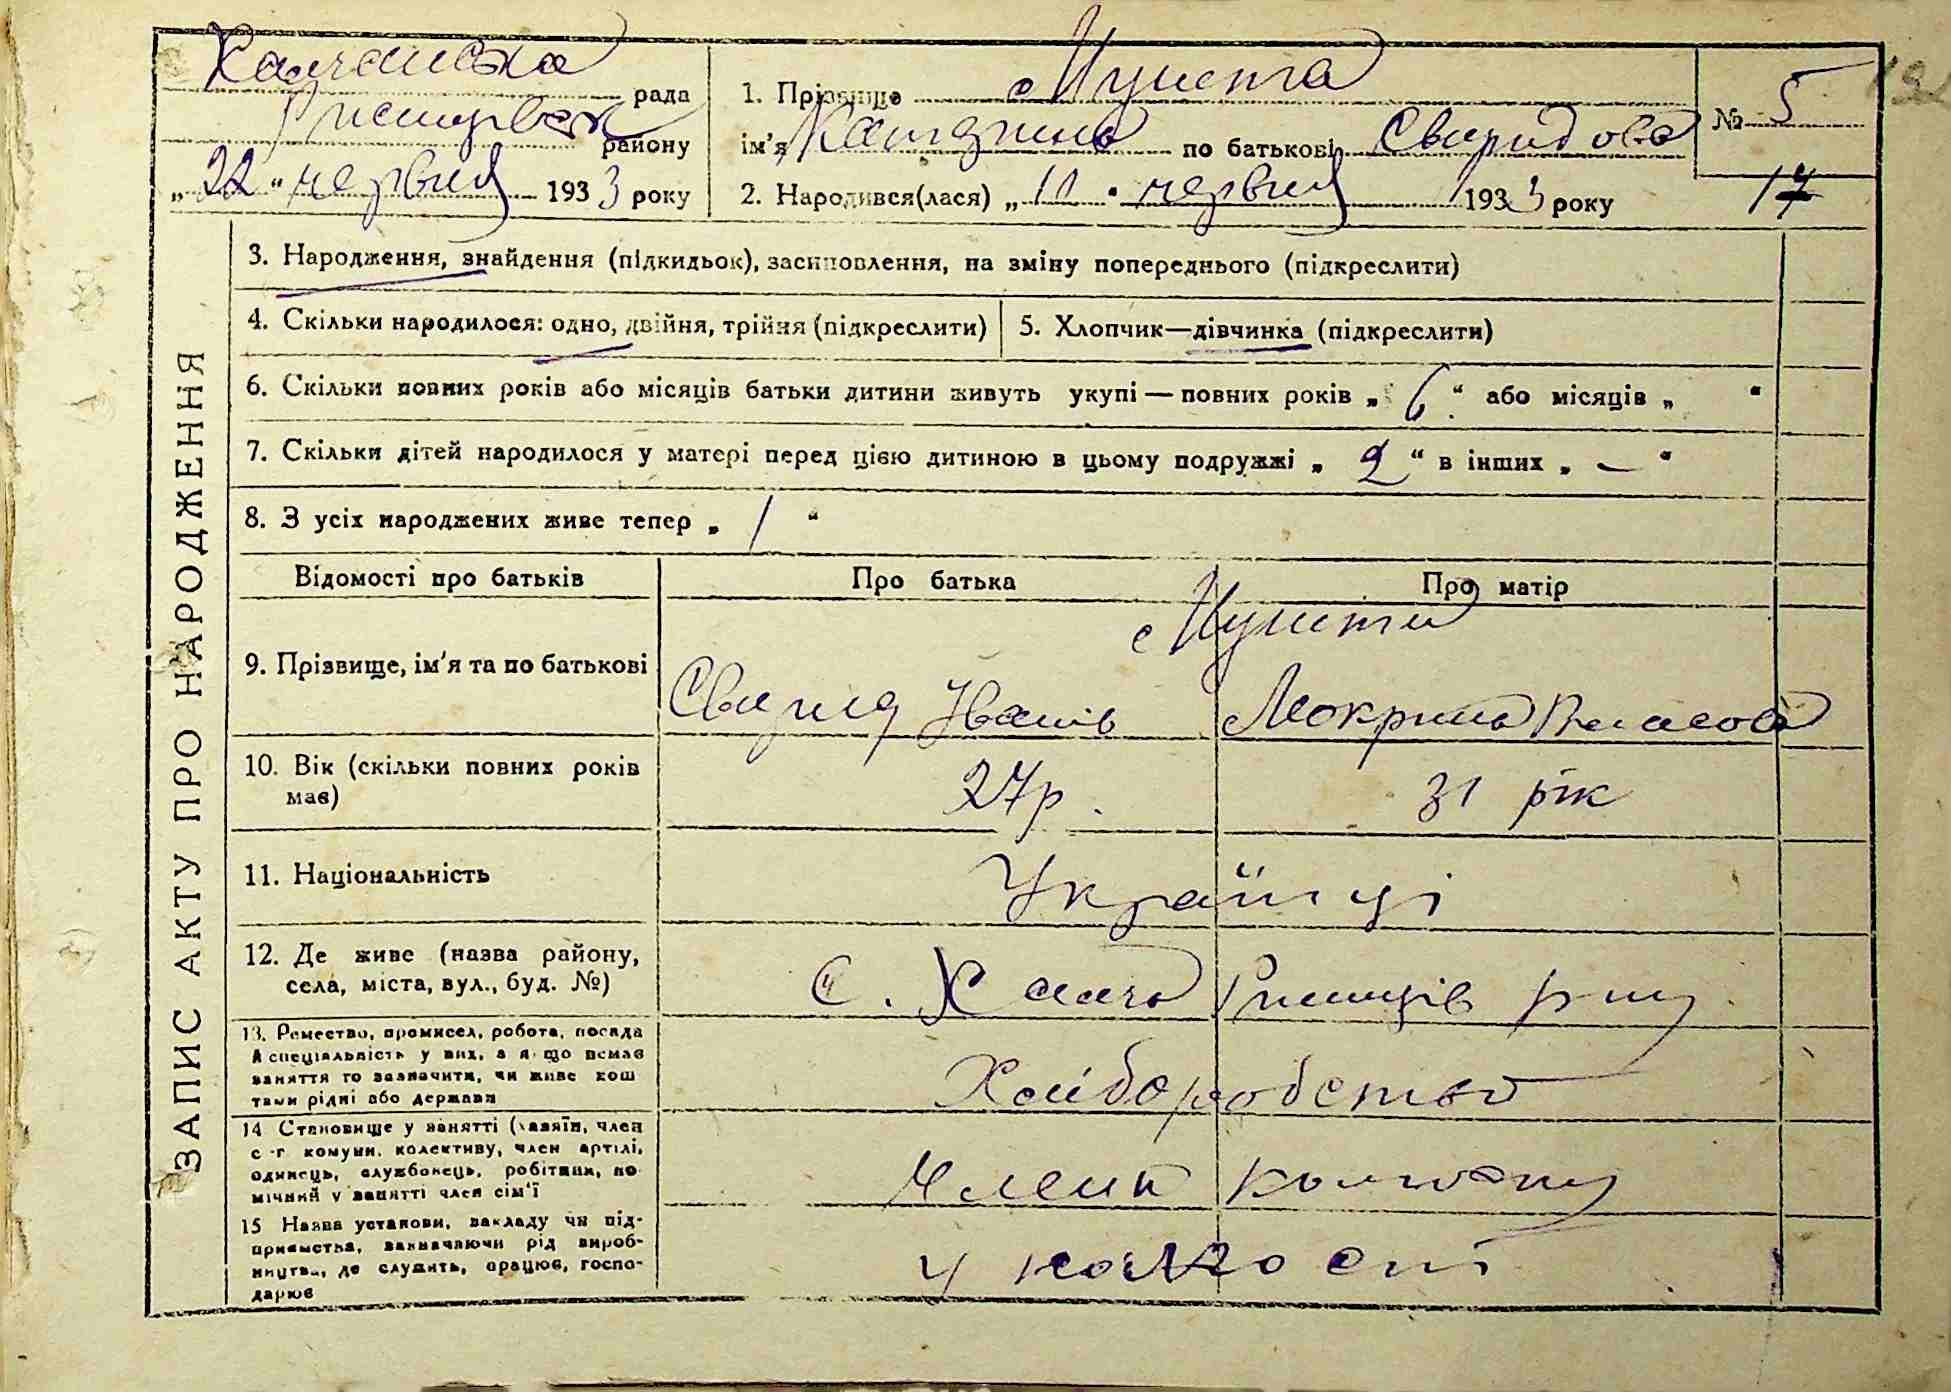 Халчанська рада
району
„22“ червня 1933 року
1. Прізвище
ім'я Катерина по батькові Свиридова
2. Народився(лася) „11“ червня 1933 року
№ 5
17
ЗАПИС АКТУ ПРО НАРОДЖЕННЯ
3. Народження, знайдення (підкидьок), засиновлення, на зміну попереднього (підкреслити)
4. Скільки народилося: одно, двійня, трійня (підкреслити)
5. Хлопчик—дівчинка (підкреслити)
6. Скільки повних років або місяців батьки дитини живуть укупі — повних років „ 6 “ або місяців „ “
7. Скільки дітей народилося у матері перед цією дитиною в цьому подружжі „ 2 “ в інших „ — “
8. З усіх народжених живе тепер „ 1 “
Відомості про батьків Про батька Про матір
9. Прізвище, ім'я та по батькові
Свирид Іванів Мокрина Власова
10. Вік (скільки повних років
має)
27 р. 31 рік
11. Національність
Українці
12. Де живе (назва району,
села, міста, вул., буд. №)
с. Халча Ржищів р-ну
13. Ремество, промисел, робота, посада
й спеціяльність у них, а якщо немає
заняття то зазначити, чи живе кош
тами рідні або держави
Хліборобство
14 Становище у занятті (хазяїн, член
с-г комуни, колективу, член артілі,
одинець, службовець, робітник, по-
мічний у занятті член сім'ї
Члени колгоспу
15 Назва установи, закладу чи під-
приємства, зазначаючи рід вироб-
ництва, де служить, працює, госпо-
дарює
у колгоспі